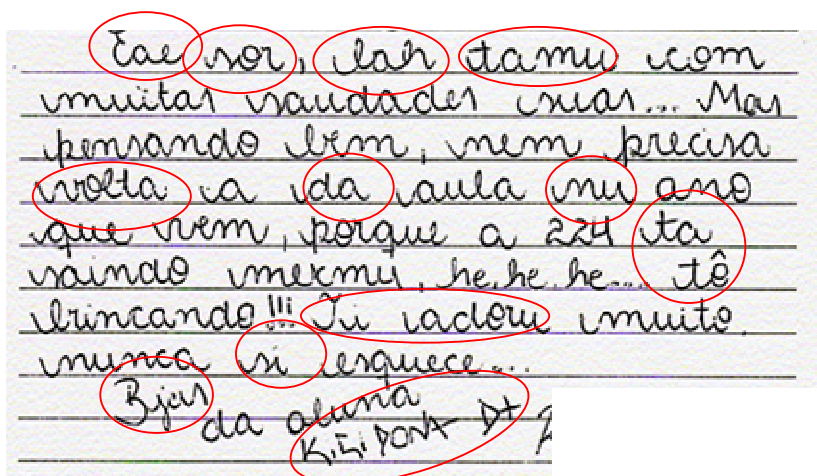 Eae sor, bah tamu com
muitas saudades suas... Mas
pensando bem, nem precisa
volta a da aula nu ano
que vem, porque a 224 ta
saindo mesmu, he.he.he... tô
brincando!!! Ti adoru muito.
nunca si esquece...
Bjus
da aluna
D+